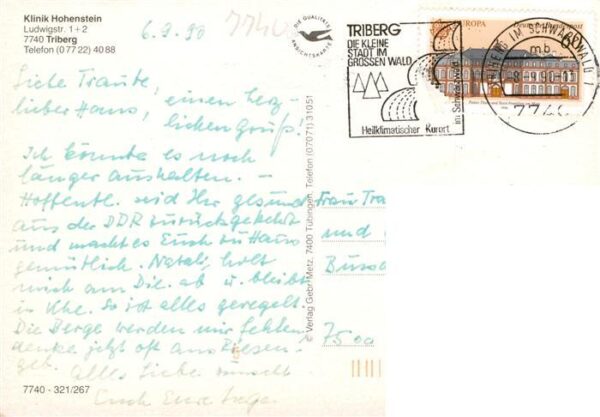 Klinik Hohenstein
Ludwigstr. 1+2
7740 Triberg
Telefon (0 77 22) 40 88
6.9.90
7740
DIE QUALITÄTS
ANSICHTSKARTE
TRIBERG
DIE KLEINE
STADT IM
GROSSEN WALD
Heilklimatischer Kurort
im Schwarzwald
EUROPA
Deutsche Bundespost
60
TRIBERG IM SCHWARZWALD 1
mb
7740
Liebe Traute,
lieber Hans, einen herz-
lichen Gruß!
Ich könnte es noch
länger aushalten. –
Hoffentl. seid Ihr gesund
aus der DDR zurückgekehrt
und macht es Euch zu Haus
gemütlich. Natalie holt
mich am Die. ab u. bleibt
in Uhe. So ist alles geregelt.
Die Berge werden mir fehlen
denke jetzt oft an Riesen-
geb.
Alles Liebe wünscht
Euch Eure
Frau Tra
und
7500
© Verlag Gebr. Metz, 7400 Tübingen, Telefon (07071) 31051
7740 - 321/267